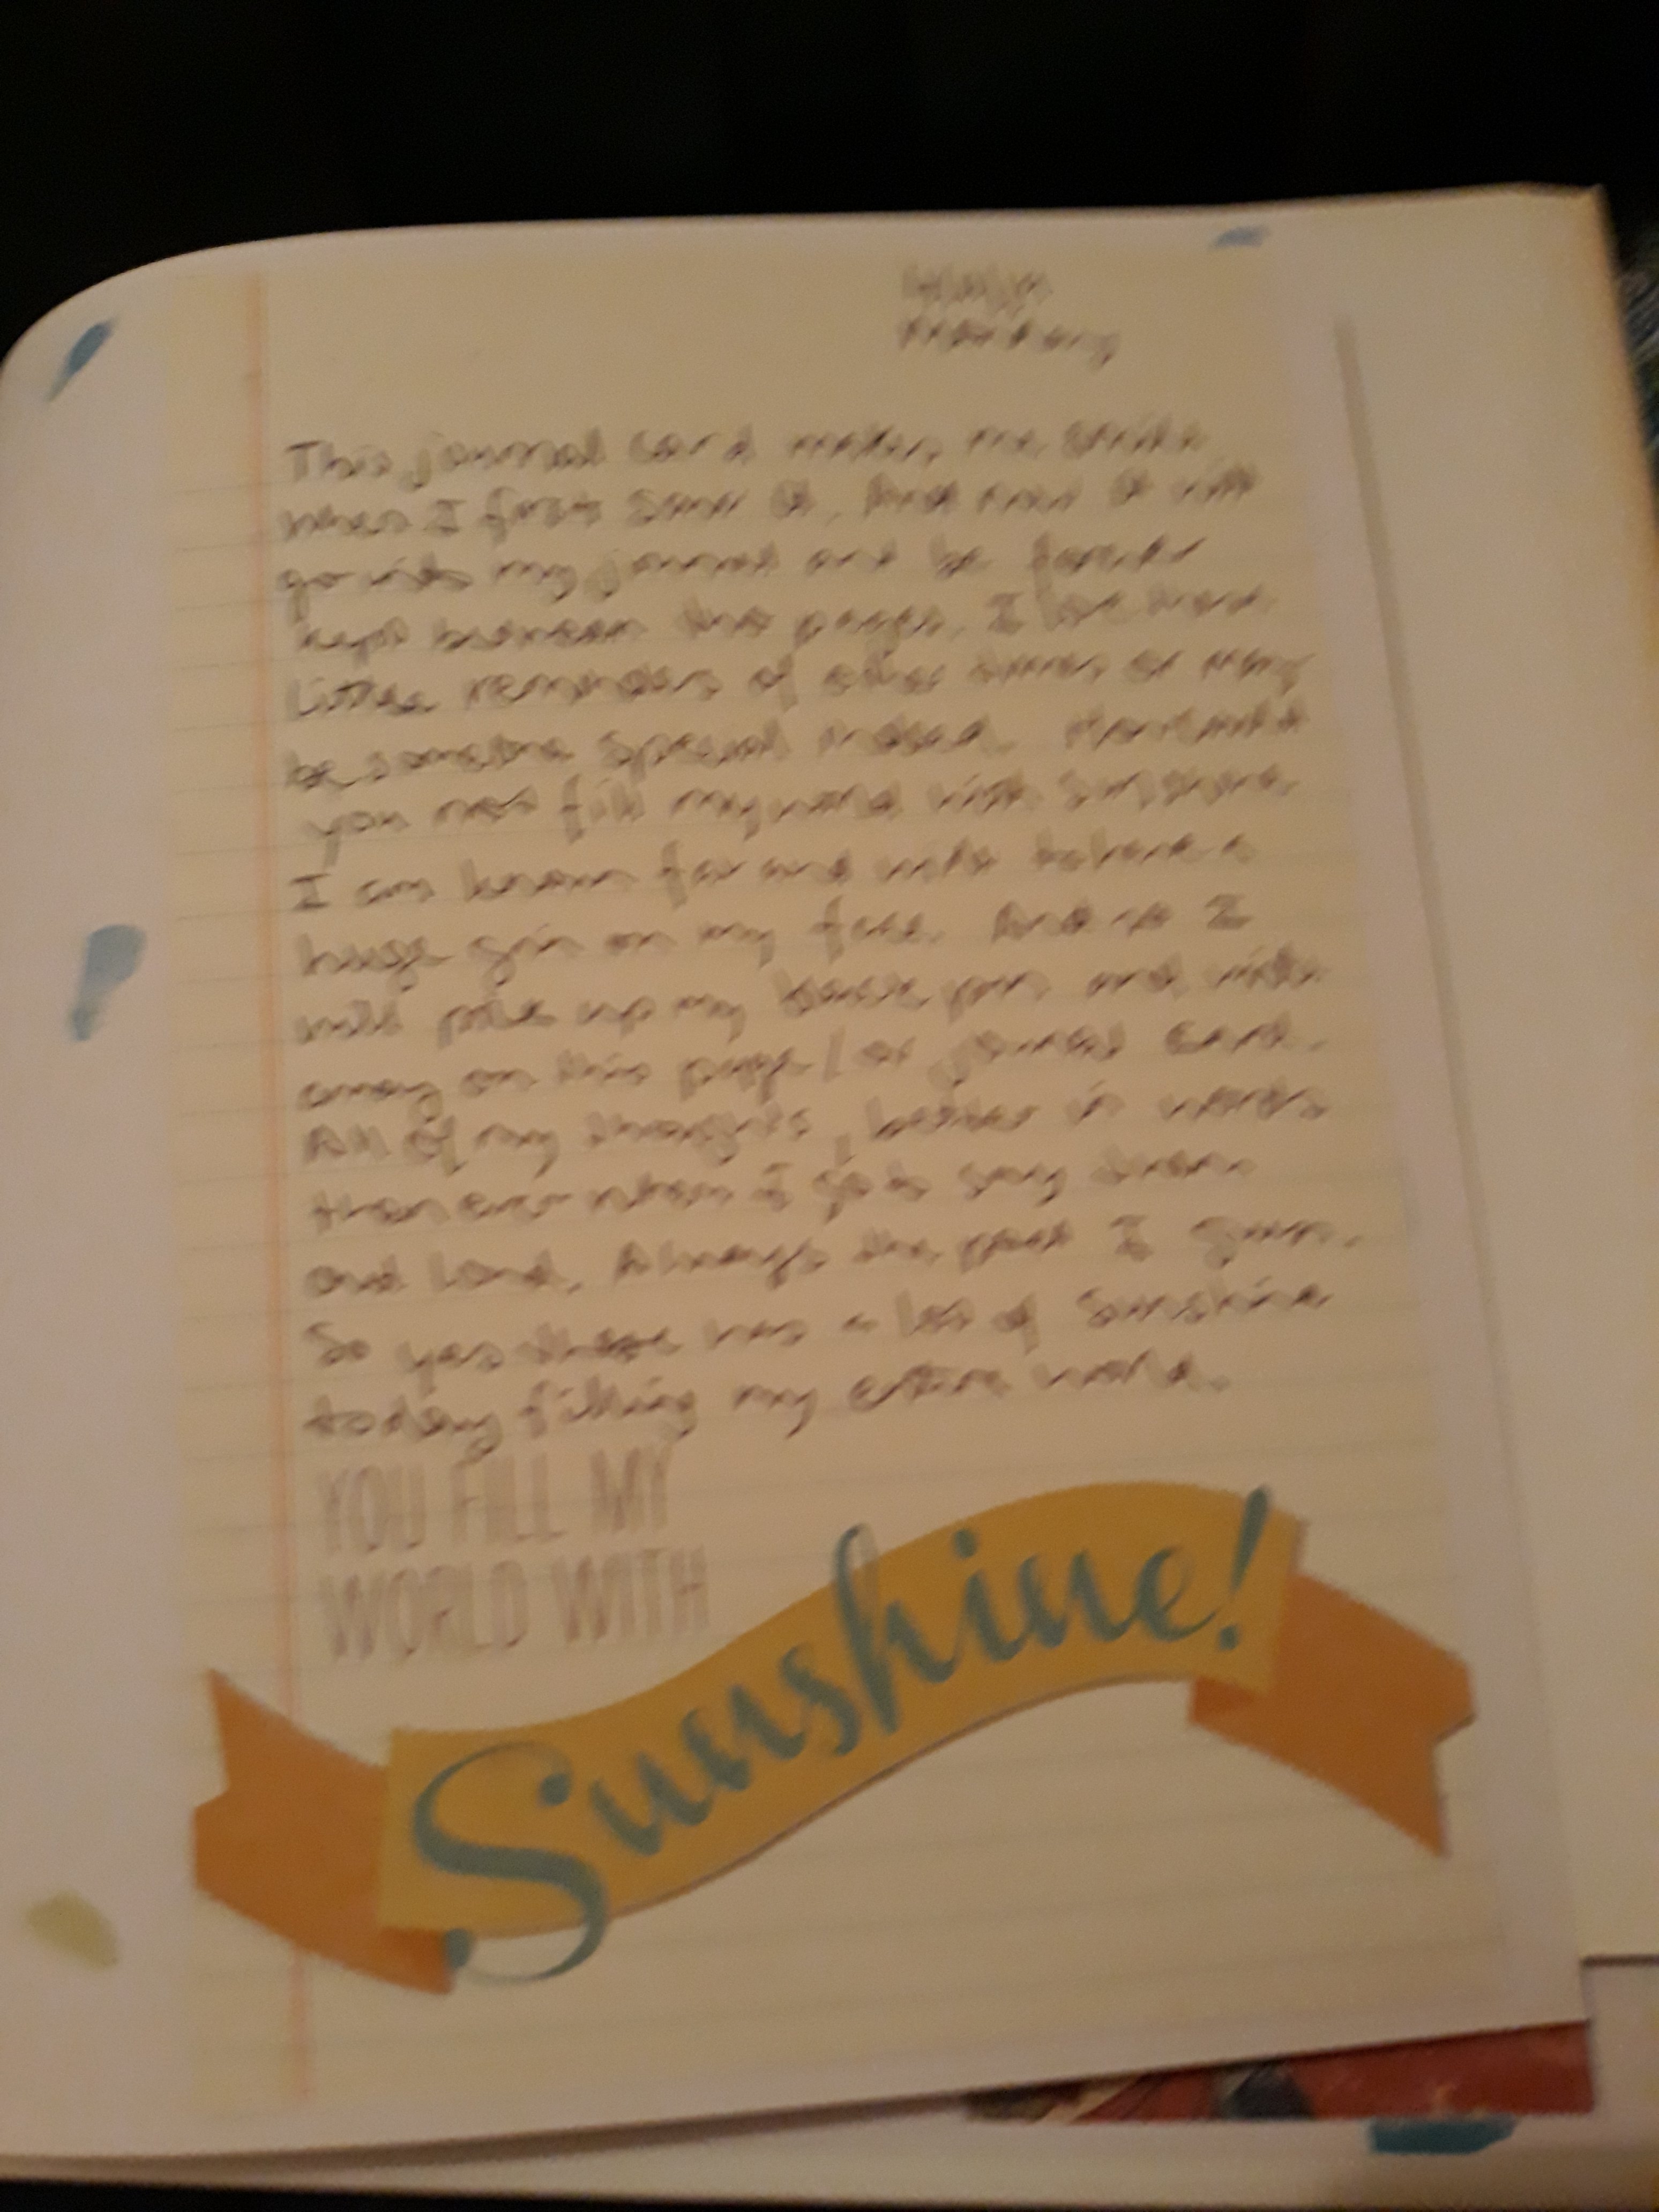 This journal card makes me smile
when I first saw it. And now it will
go into my journal and be forever
kept between the pages. I love these
little reminders of other times or may
be someone special indeed.
you not fill my world with sunshine.
I am known far and wide to have a
huge grin on my face. And so I
will pick up my black pen and write
away on this page / or journal card.
All of my thoughts, better in words
then ever when I go to say them
out loud. Always the poet I guess.
So yes there was a lot of sunshine
today filling my entire world.
YOU FILL MY
WORLD WITH
Sunshine!